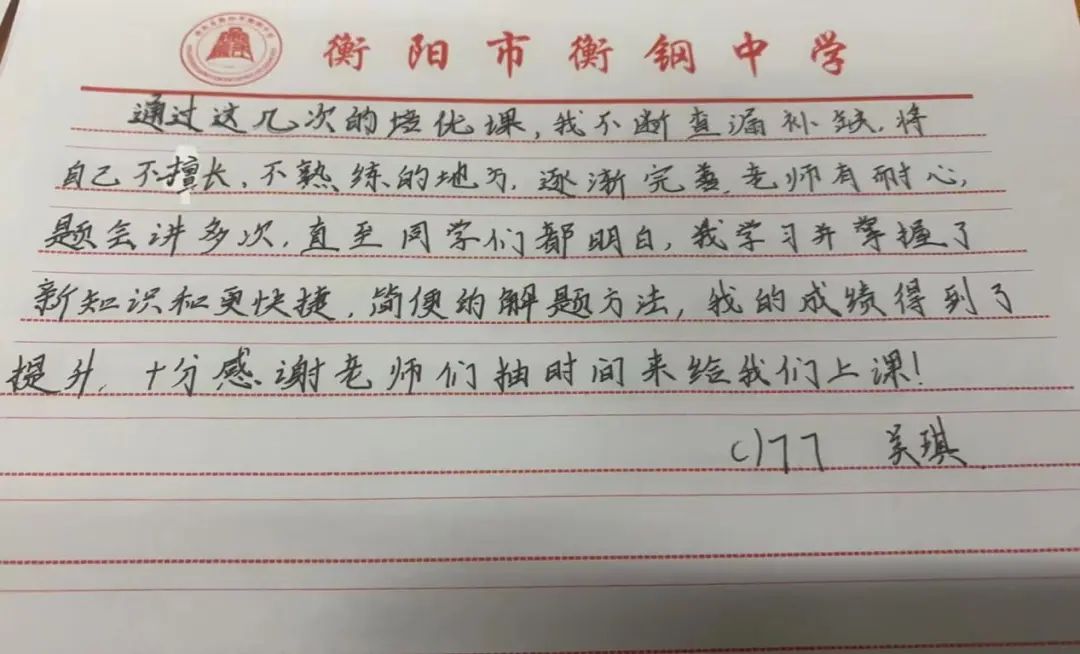 衡阳市衡钢中学
通过这几次的培优课,我不断查漏补缺,将
自己不擅长、不熟练的地方,逐渐完善,老师有耐心,
题会讲多次,直至同学们都明白,我学习并掌握了
新知识和更快捷,简便的解题方法,我的成绩得到了
提升,十分感谢老师们抽时间来给我们上课!
C177 吴琪